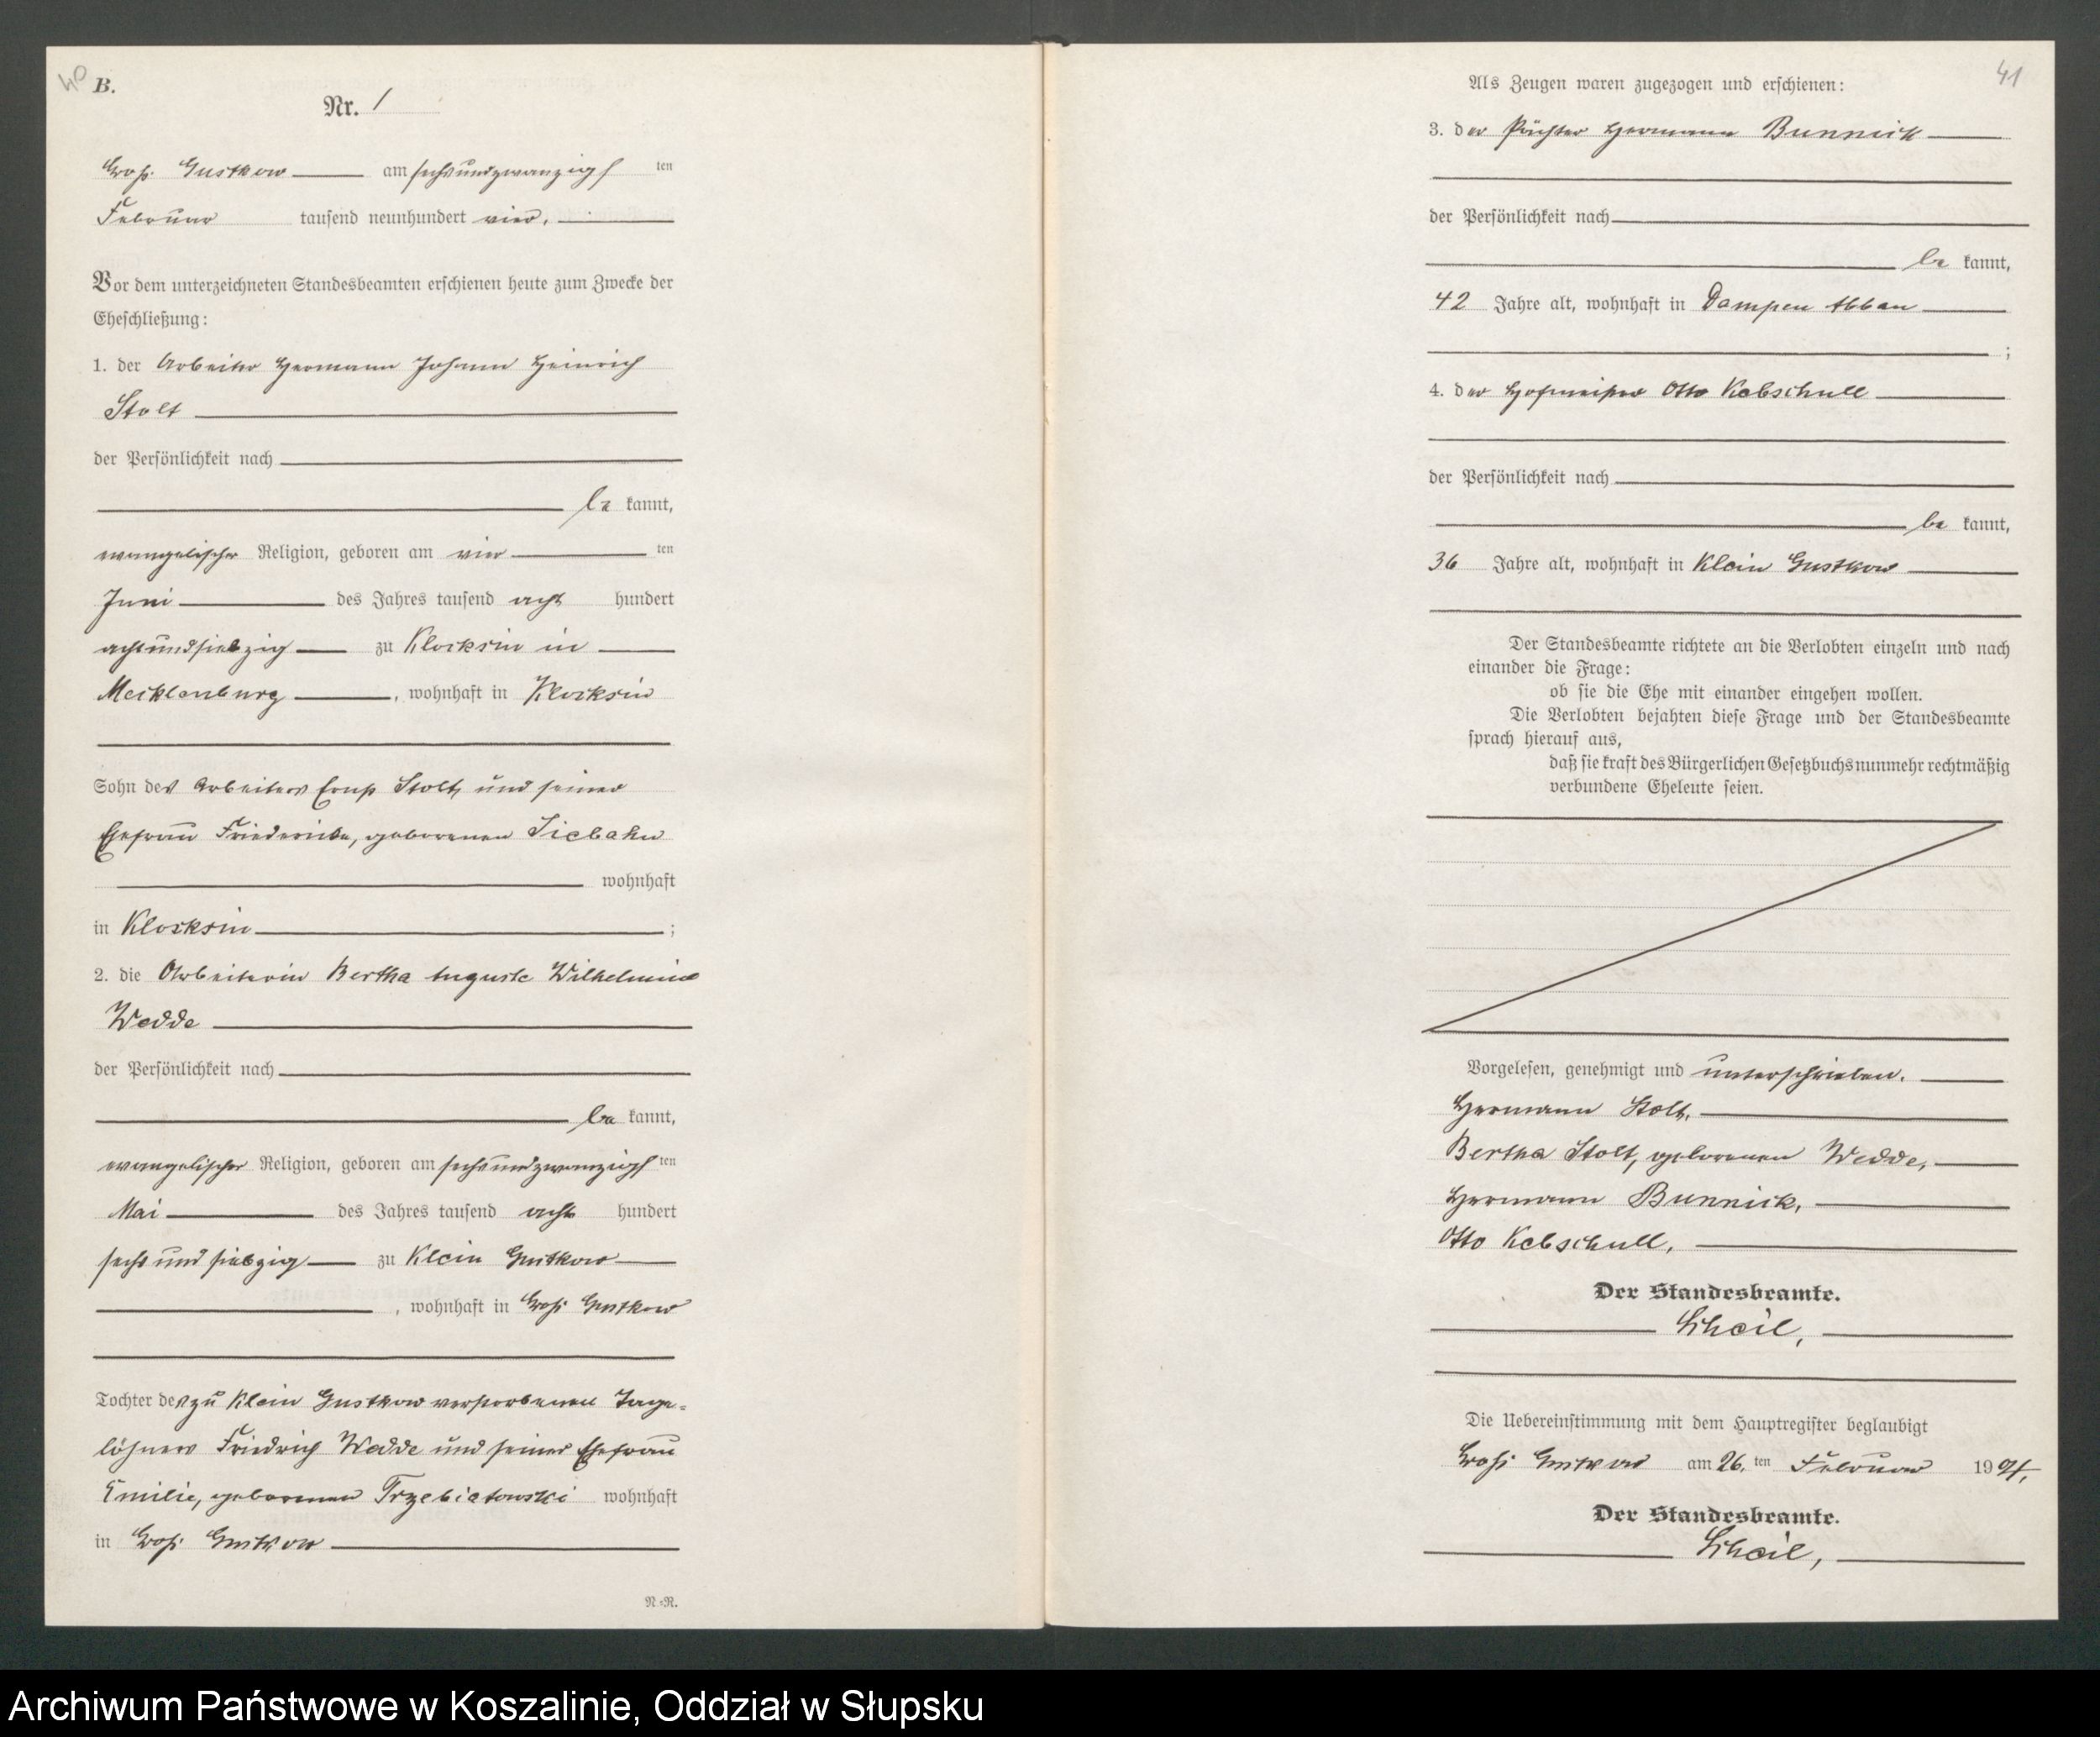 40
B.
Nr. 1
Groß Gustkow am sechsundzwanzigsten
Februar tausend neunhundert vier.
Vor dem unterzeichneten Standesbeamten erschienen heute zum Zwecke der
Eheschließung:
1. der Arbeiter Hermann Johann Heinrich
Stolt
der Persönlichkeit nach
be kannt,
evangelischer Religion, geboren am vier ten
Juni des Jahres tausend acht hundert
achtundsiebzig zu Klocksin in
Mecklenburg, wohnhaft in Klocksin
Sohn des Arbeiters Ernst Stolt und seiner
Ehefrau Friedericke, geborenen
wohnhaft
in Klocksin;
2. die Arbeiterin Bertha Auguste Wilhelmine
Wedde
der Persönlichkeit nach
be kannt,
evangelischer Religion, geboren am sechsundzwanzigsten
Mai des Jahres tausend acht hundert
sechs und siebzig zu Klein Gustkow
, wohnhaft in Groß Gustkow
Tochter des zu Klein Gustkow verstorbenen Tage=
löhners Friedrich Wedde und seiner Ehefrau
Emilie, geborenen Trzebiatowski wohnhaft
in Groß Gustkow
N=R.
41
Als Zeugen waren zugezogen und erschienen:
3. der Pächter Hermann Bunnick
der Persönlichkeit nach
be kannt,
42 Jahre alt, wohnhaft in Dampen Abbau
;
4. der Hofmeister Otto Kebschull
der Persönlichkeit nach
be kannt,
36 Jahre alt, wohnhaft in Klein Gustkow
Der Standesbeamte richtete an die Verlobten einzeln und nach
einander die Frage:
ob sie die Ehe mit einander eingehen wollen.
Die Verlobten bejahten diese Frage und der Standesbeamte
sprach hierauf aus,
daß sie kraft des Bürgerlichen Gesetzbuchs nunmehr rechtmäßig
verbundene Eheleute seien.
Vorgelesen, genehmigt und unterschrieben.
Hermann Stolt,
Bertha Stolt, geborenen Wedde,
Hermann Bunnick,
Otto Kebschull,
Der Standesbeamte.
Scheil,
Die Uebereinstimmung mit dem Hauptregister beglaubigt
Groß Gustkow am 26. ten Februar 1904.
Der Standesbeamte.
Scheil,
Archiwum Państwowe w Koszalinie, Oddział w Słupsku